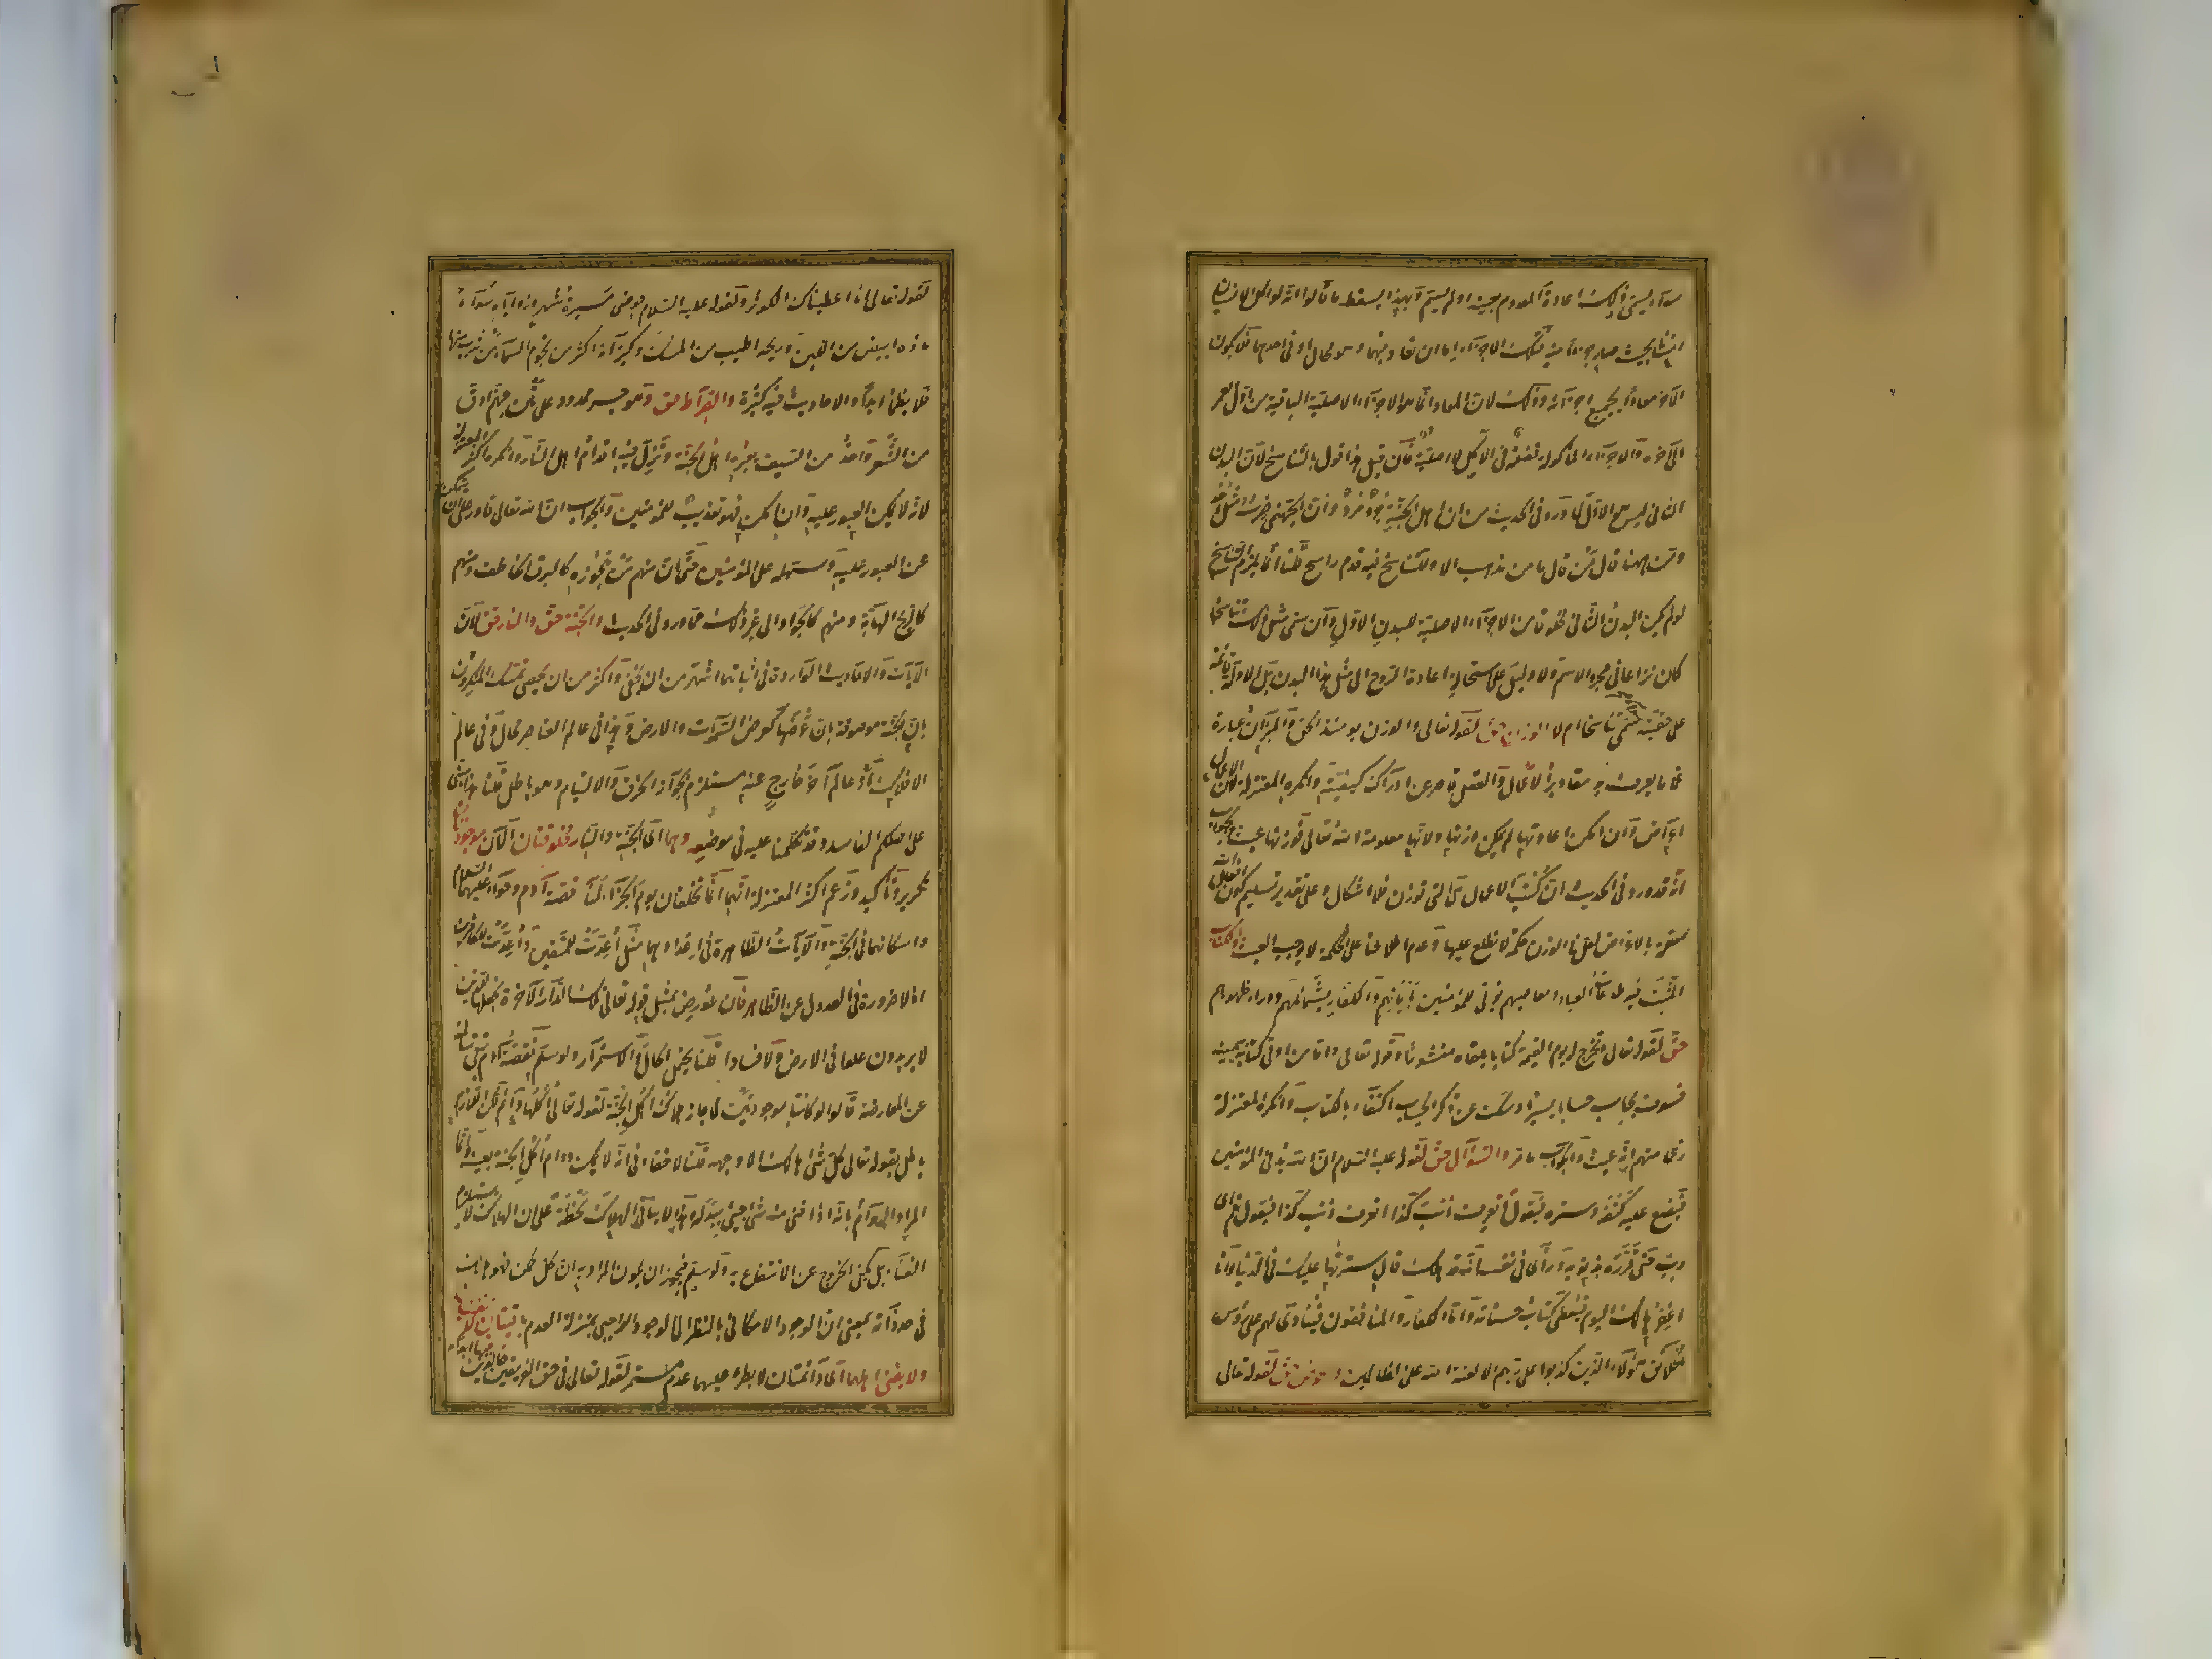 سواء يسمى ذلك اعادة المعدوم بعينه او لم يسم وبهذا يسقط ما قالوا انه لو اكل انسان
انسانا بحيث صار جزءا منه فتلك الاجزاء اما ان تعاد فيهما وهو محال او فى احدهما فلا يكون
الآخر معادا بجميع اجزائه وذلك لان المعاد انما هو الاجزاء الاصلية الباقية من اول العمر
الى آخره والاجزاء المأكولة فضلة فى الآكل لا اصلية فان قيل هذا قول بالتناسخ لان البدن
الثانى ليس هو الاول لما ورد فى الحديث من ان اهل الجنة جرد مرد وان الجهنمى ضرسه مثل احد
ومن ههنا قال من قال ما من مذهب الا وللتناسخ فيه قدم راسخ قلنا انما يلزم التناسخ
لو لم يكن البدن الثانى مخلوقا من الاجزاء الاصلية للبدن الاول وان سمى مثل ذلك تناسخا
كان نزاعا فى مجرد الاسم ولا دليل على استحالة اعادة الروح الى مثل هذا البدن بل الادلة قائمة
على حقيته سمى تناسخا ام لا والوزن حق لقوله تعالى والوزن يومئذ الحق والميزان عبارة
عما يعرف به مقادير الاعمال والعقل قاصر عن ادراك كيفيته وانكره المعتزلة لان الاعمال
اعراض وان امكن اعادتها لم يمكن وزنها ولانها معلومة الله تعالى فوزنها عبث والجواب
انه قد ورد فى الحديث ان كتب الاعمال هى التى توزن فلا اشكال وعلى تقدير تسليم كون افعال الله
معللة بالاغراض لعل فى الوزن حكمة لا نطلع عليها وعدم اطلاعنا على الحكمة لا يوجب العبث والكتاب
المثبت فيه طاعات العباد ومعاصيهم يؤتى للمؤمنين بايمانهم والكفار بشمائلهم ووراء ظهورهم
حق لقوله تعالى ونخرج له يوم القيمة كتابا يلقاه منشورا وقوله تعالى واما من اوتى كتابه بيمينه
فسوف يحاسب حسابا يسيرا وسكت عن ذكر الحساب اكتفاء بالكتاب وانكره المعتزلة
زعما منهم انه عبث والجواب ما مر والسؤال حق لقوله عليه السلام ان الله يدنى المؤمنين
فيضع عليه كنفه وستره فيقول أتعرف ذنب كذا اتعرف ذنب كذا فيقول نعم اى
رب حتى قرره بذنوبه ورأى فى نفسه انه قد هلك قال سترتها عليك فى الدنيا وانا
اغفرها لك اليوم فيعطى كتاب حسناته واما الكفار والمنافقون فينادى لهم على رؤس
الخلائق هؤلاء الذين كذبوا على ربهم الا لعنة الله على الظالمين والحوض حق لقوله تعالى
لقوله تعالى انا اعطيناك الكوثر ولقوله عليه السلام حوضى مسيرة شهر وزواياه سواء
ماؤه ابيض من اللبن وريحه اطيب من المسك وكيزانه اكثر من نجوم السماء من شرب منها
فلا يظمأ ابدا والاحاديث فيه كثيرة والصراط حق وهو جسر ممدود على متن جهنم ادق
من الشعر واحد من السيف يعبره اهل الجنة وتزل فيه اقدام اهل النار وانكره اكثر المعتزلة
لانه لا يمكن العبور عليه وان امكن فهو تعذيب للمؤمنين والجواب ان الله تعالى قادر على ان يمكن
من العبور عليه وسهله على المؤمنين حتى ان منهم من يجوزه كالبرق الخاطف ومنهم
كالريح الهابة ومنهم كالجواد الى غير ذلك مما ورد فى الحديث والجنة حق والنار حق لان
الآيات والاحاديث الواردة فى اثباتهما اشهر من ان يخفى واكثر من ان يحصى تمسك المنكرون
بان الجنة موصوفة بان عرضها كعرض السموات والارض وهذا فى عالم العناصر محال وفى عالم
الافلاك او عالم آخر خارج عنه مستلزم لجواز الخرق والالتيام وهو باطل قلنا هذا مبنى
على اصلكم الفاسد وقد تكلمنا عليه فى موضعه وهما اى الجنة والنار مخلوقتان الآن موجودتان
تكرير وتأكيد وزعم اكثر المعتزلة انهما انما تخلقان يوم الجزاء لنا قصة آدم وحواء عليهما السلام
واسكانهما فى الجنة والآيات الظاهرة فى اعدادهما مثل اعدت للمتقين واعدت للكافرين
اذ لا ضرورة فى العدول عن الظاهر فان عورض بمثل قوله تعالى تلك الدار الآخرة نجعلها للذين
لا يريدون علوا فى الارض ولا فسادا قلنا يحتمل الحال والاستمرار ولو سلم فقصة آدم تبقى سالمة
عن المعارضة قالوا لو كانتا موجودتين لما جاز هلاك اكل الجنة لقوله تعالى اكلها دائم لكن اللازم
باطل لقوله تعالى كل شئ هالك الا وجهه قلنا لا خفاء فى انه لا يمكن دوام اكل الجنة بعينه وانما
المراد الدوام بانه اذا فنى منه شئ جئ ببدله وهذا لا ينافى الهلاك لحظة على ان الهلاك لا يستلزم
الفناء بل يكفى الخروج عن الانتفاع به ولو سلم فيجوز ان يكون المراد به ان كل ممكن فهو هالك
فى حد ذاته بمعنى ان الوجود الامكانى بالنظر الى الوجود الواجبى بمنزلة العدم باقيتان لا تفنيان
ولا يفنى اهلهما اى دائمتان لا يطرأ عليهما عدم مستمر لقوله تعالى فى حق الفريقين خالدين فيها ابدا